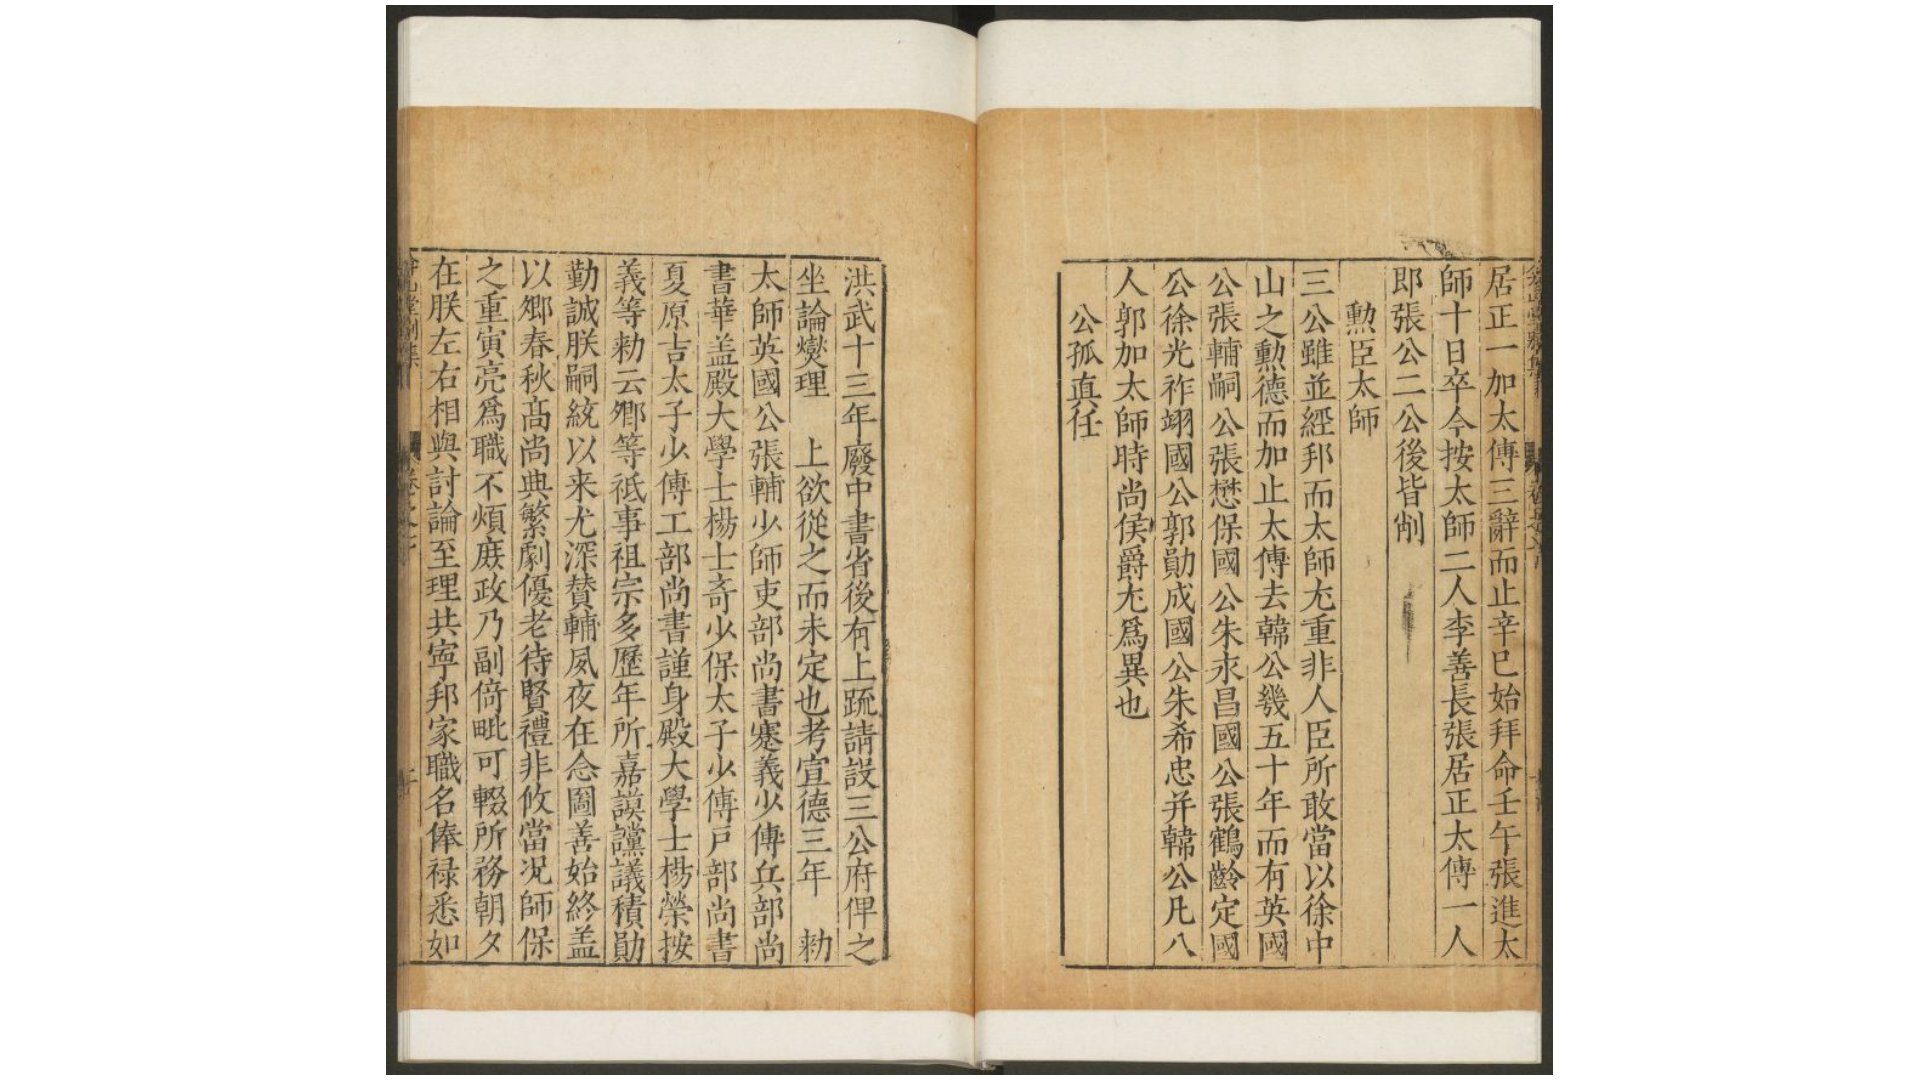 居正一加太傅三辭而止辛巳始拜命壬午張進太
師十日卒今按太師二人李善長張居正太傅一人
即張公二公後皆削
勲臣太師
三公雖並經邦而太師尤重非人臣所敢當以徐中
山之勲德而加止太傅去韓公幾五十年而有英國
公張輔嗣公張懋保國公朱永昌國公張鶴齡定國
公徐光祚翊國公郭勛成國公朱希忠并韓公凡八
人郭加太師時尚侯爵尤爲異也
公孤真任
洪武十三年廢中書省後有上疏請設三公府俾之
坐論燮理 上欲從之而未定也考宣德三年 勑
太師英國公張輔少師吏部尚書蹇義少傅兵部尚
書華盖殿大學士楊士奇少保太子少傅戶部尚書
夏原吉太子少傅工部尚書謹身殿大學士楊榮按
義等勑云卿等祗事祖宗多歷年所嘉謨讜議積勛
勤誠朕嗣統以来尤深賛輔夙夜在念圖善始終盖
以鄉春秋髙尚典繁劇優老待賢禮非攸當况師保
之重寅亮爲職不煩庶政乃副倚毗可輟所務朝夕
在朕左右相與討論至理共寕邦家職名俸禄悉如